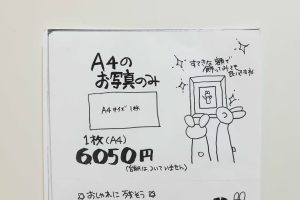 A4の
お写真のみ
すてきな額で
飾ってみても
良いですね
A4サイズ 1枚
1枚(A4)
6,050円
(額は、ついていません)
おしゃれに残そう